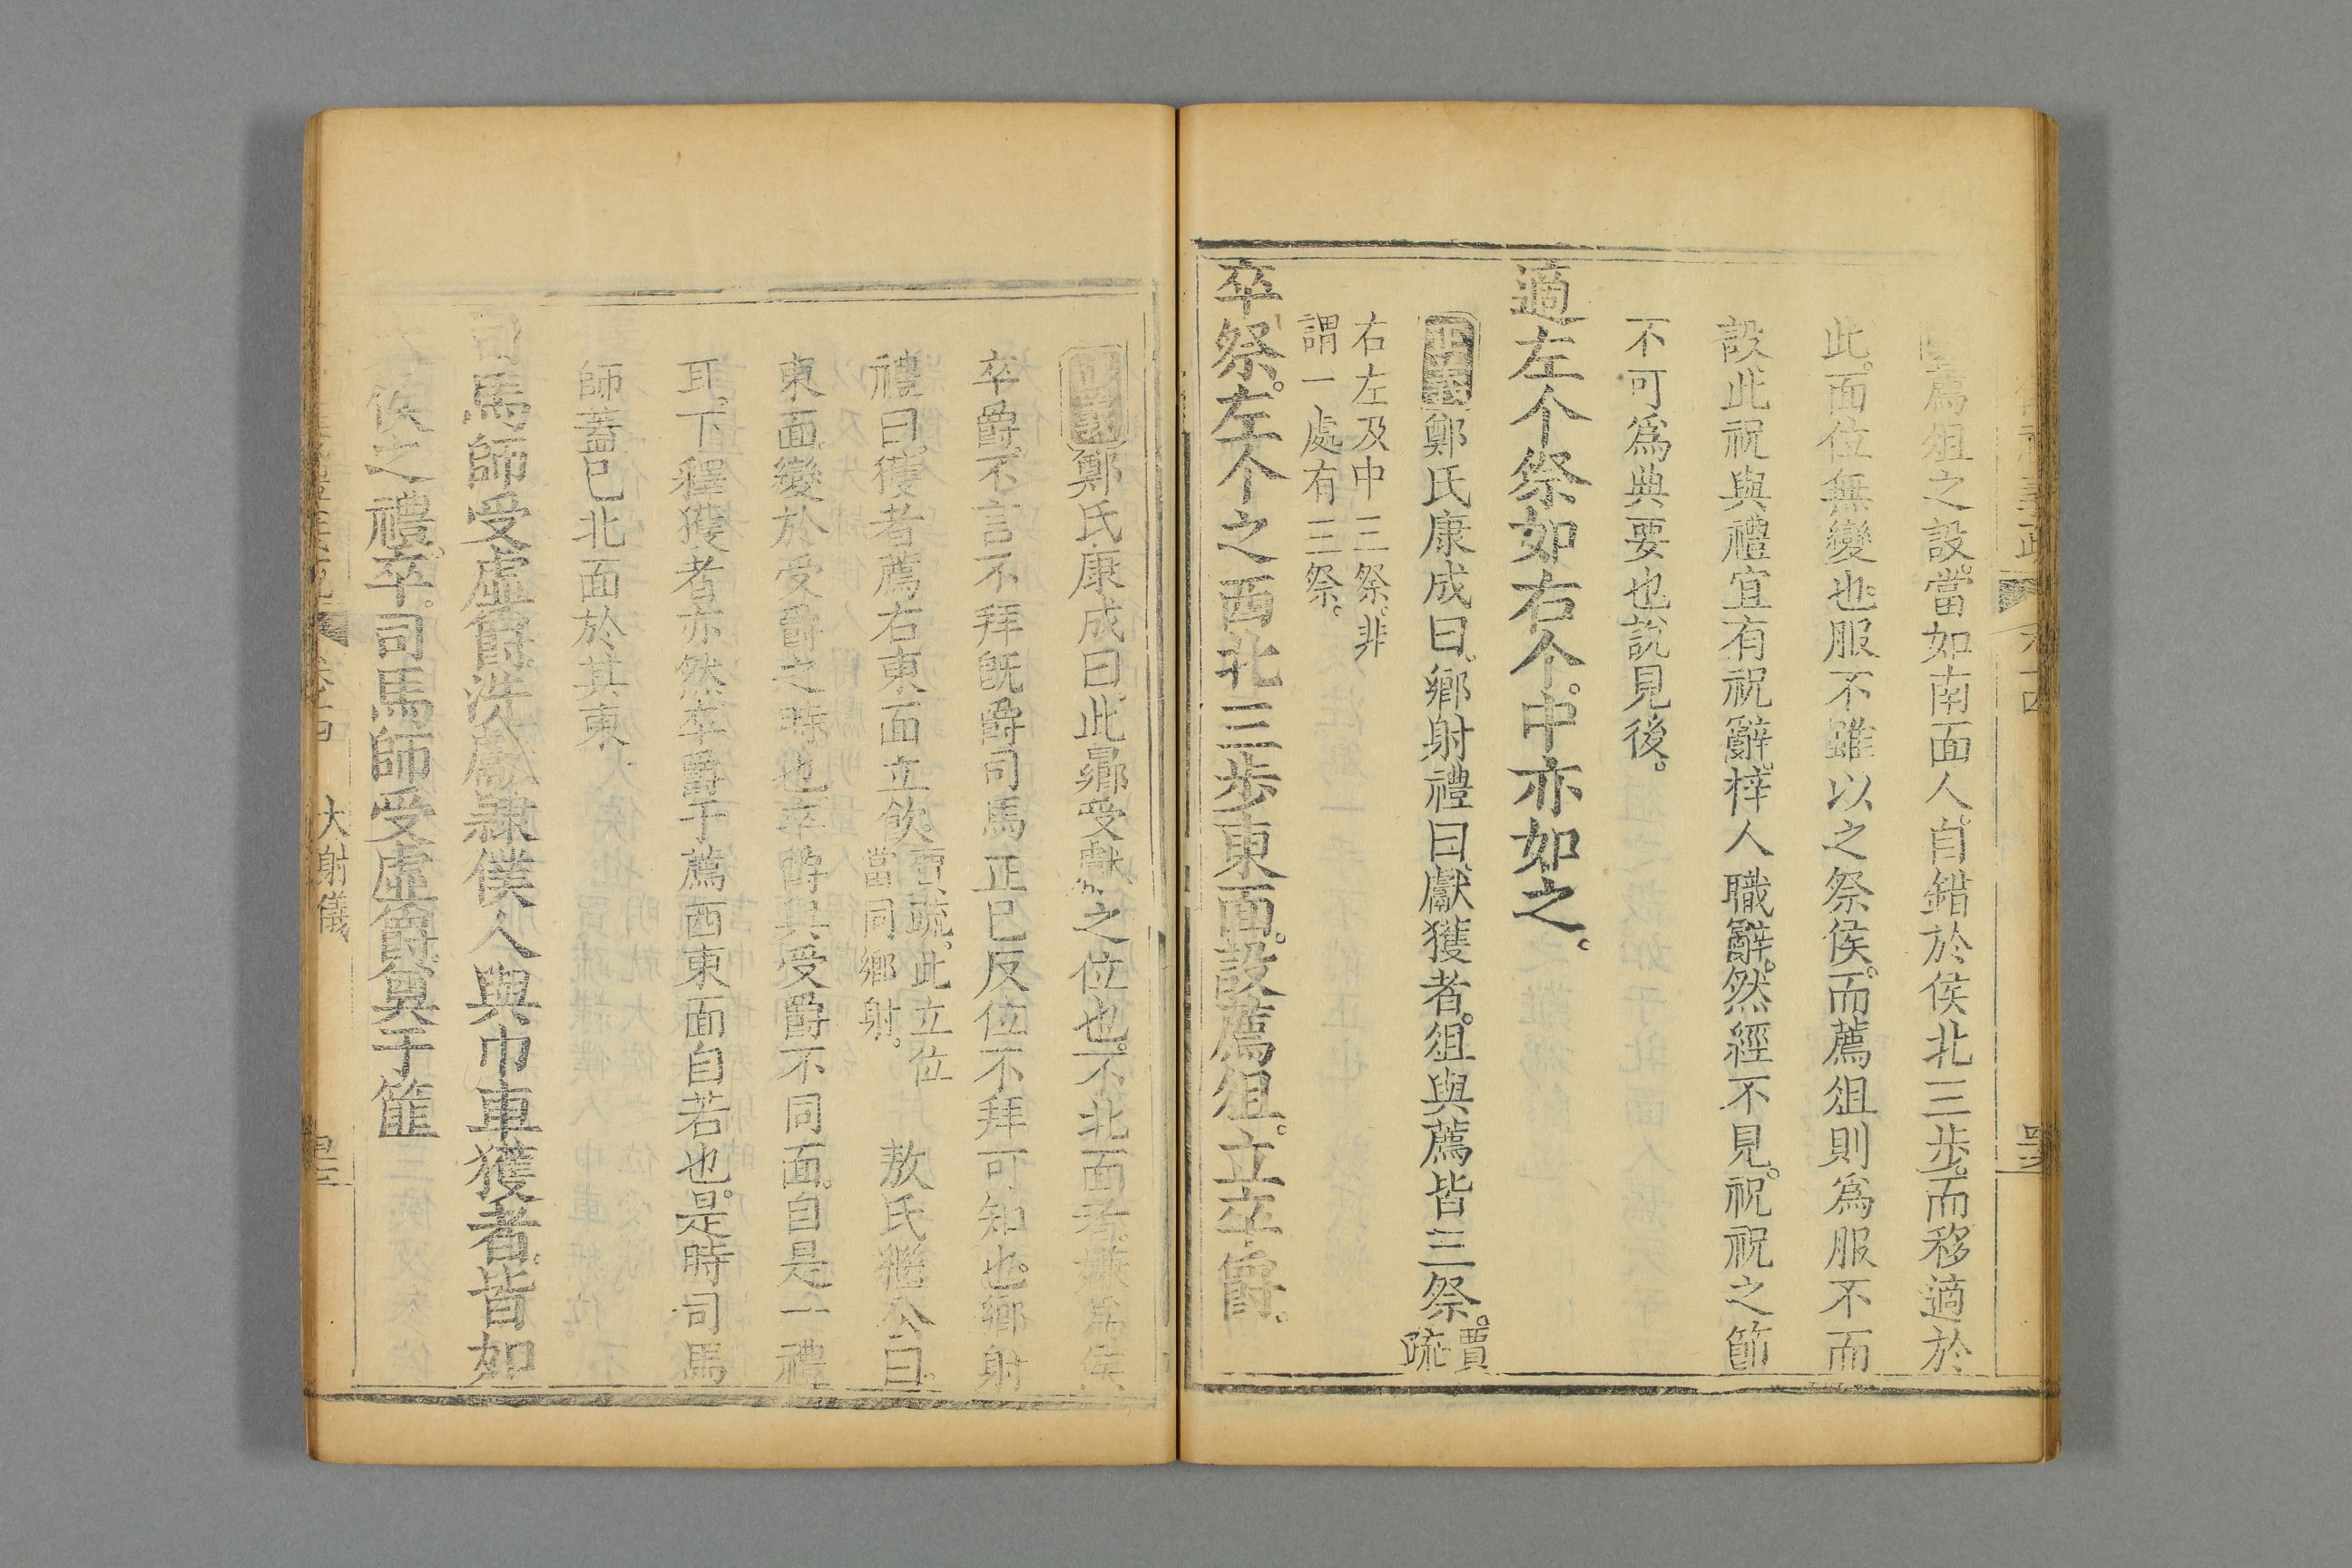 薦俎之設當如南面人自錯於侯北三步而移適於
此面位無變也服不雖以之祭侯而薦俎則為服不而
設此祝與禮宜有祝辭梓人職辭然經不見祝祝之節
不可為典要也說見後
適左个祭如右个中亦如之
正義鄭氏康成曰鄉射禮曰獻獲者俎與薦皆三祭賈疏
右左及中三祭非
謂一處有三祭
卒祭左个之西北三步東面設薦俎立卒爵
鄭氏康成曰此鄉受獻之位也不北面者嫌為侯
卒爵不言不拜既爵司馬正已反位不拜可知也鄉射
禮曰獲者薦右東面立飲賈疏此立位
當同鄉射 敖氏繼公曰
東面變於受爵之時也卒爵與受爵不同面自是一禮
耳下釋獲者亦然卒爵于薦西東面自若也是時司馬
師蓋已北面於其東
司馬師受虛爵洗獻隸僕人與巾車獲者皆如
大侯之禮卒司馬師受虛爵奠于篚
卷十四 大射儀